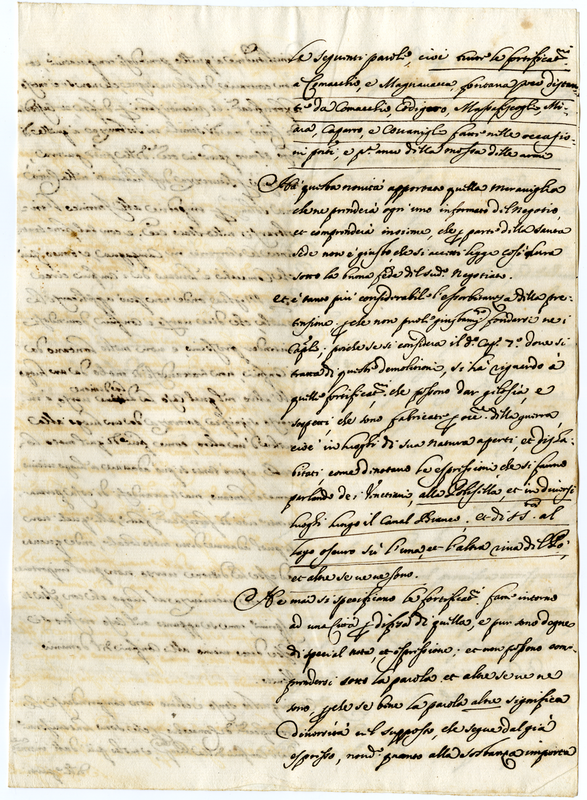 le seguenti parole, cioè tutte le fortificat.ni
a Comacchio, e Magnavacca, fontana
te da Comacchio, Codigoro, Massafiscaglia,
e fatte nelle occasio:
ni e p.
Ma questa novità apportava quella meraviglia
che ne prenderà ogni uno informato del Negotio,
et comprenderà insieme, che p parte della Santa
Sede non è giusto che si accetti legge così dura
sotto la buona fede del sud.o Negotiato.
et è tanto più considerabile l'esorbitanza della pre:
tensione, pche non può giustam.te fondarsi ne i
Cap.li, poiche se si considera il d.o Cap.o 7.o dove si
tratta di queste demolitioni, si ha riguardo à
quelle fortificat.ni che possono dar gelosia, e
sospetti che sono fabricate p della guerra
cioè in luoghi di sua natura aperti, et disha:
bitati, come dinotano le espressioni che si fanno
parlando de i Venetiani, alla Polesella, et in diversi
luoghi lungo il Canal Bianco, et di S. S.tà al
lago oscuro sù l'una, et l'altra riva del Pò,
et altre se ve ne sono.
Ne mai si specificano le fortificat.ni fatte intorno
ad una Città p difesa di quella, e pur sono degne
di special nota, et espressione; et non possono com:
prendersi sotto la parola et altre se ve ne
sono, pche se bene la parola altre significa
diversità nel supposto, che segue dal già
espresso, nond. quanto alla sostanza importa